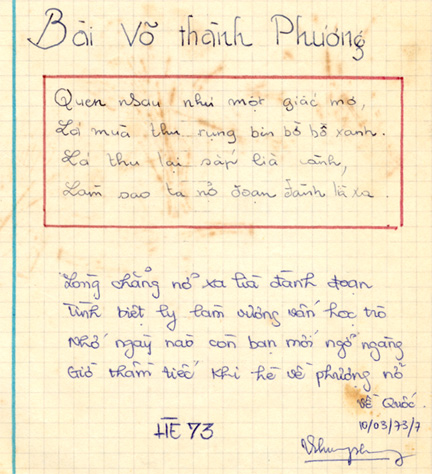 Bài Võ thành Phương
Quen nhau như một giấc mơ,
Lá mùa thu rụng bên bờ hồ xanh.
Lá thu lại sắp lià cành,
Làm sao ta nỡ đoạn đành lià xa.
Lòng chẳng nở xa lià đành đoạn
Tình biệt ly làm vương vấn học trò
Nhớ ngày nào còn bạn mới ngỡ ngàng
Giờ thầm tiếc khi hè về phượng nở
Vệ Quốc.
10/03/73/7
HÈ 73